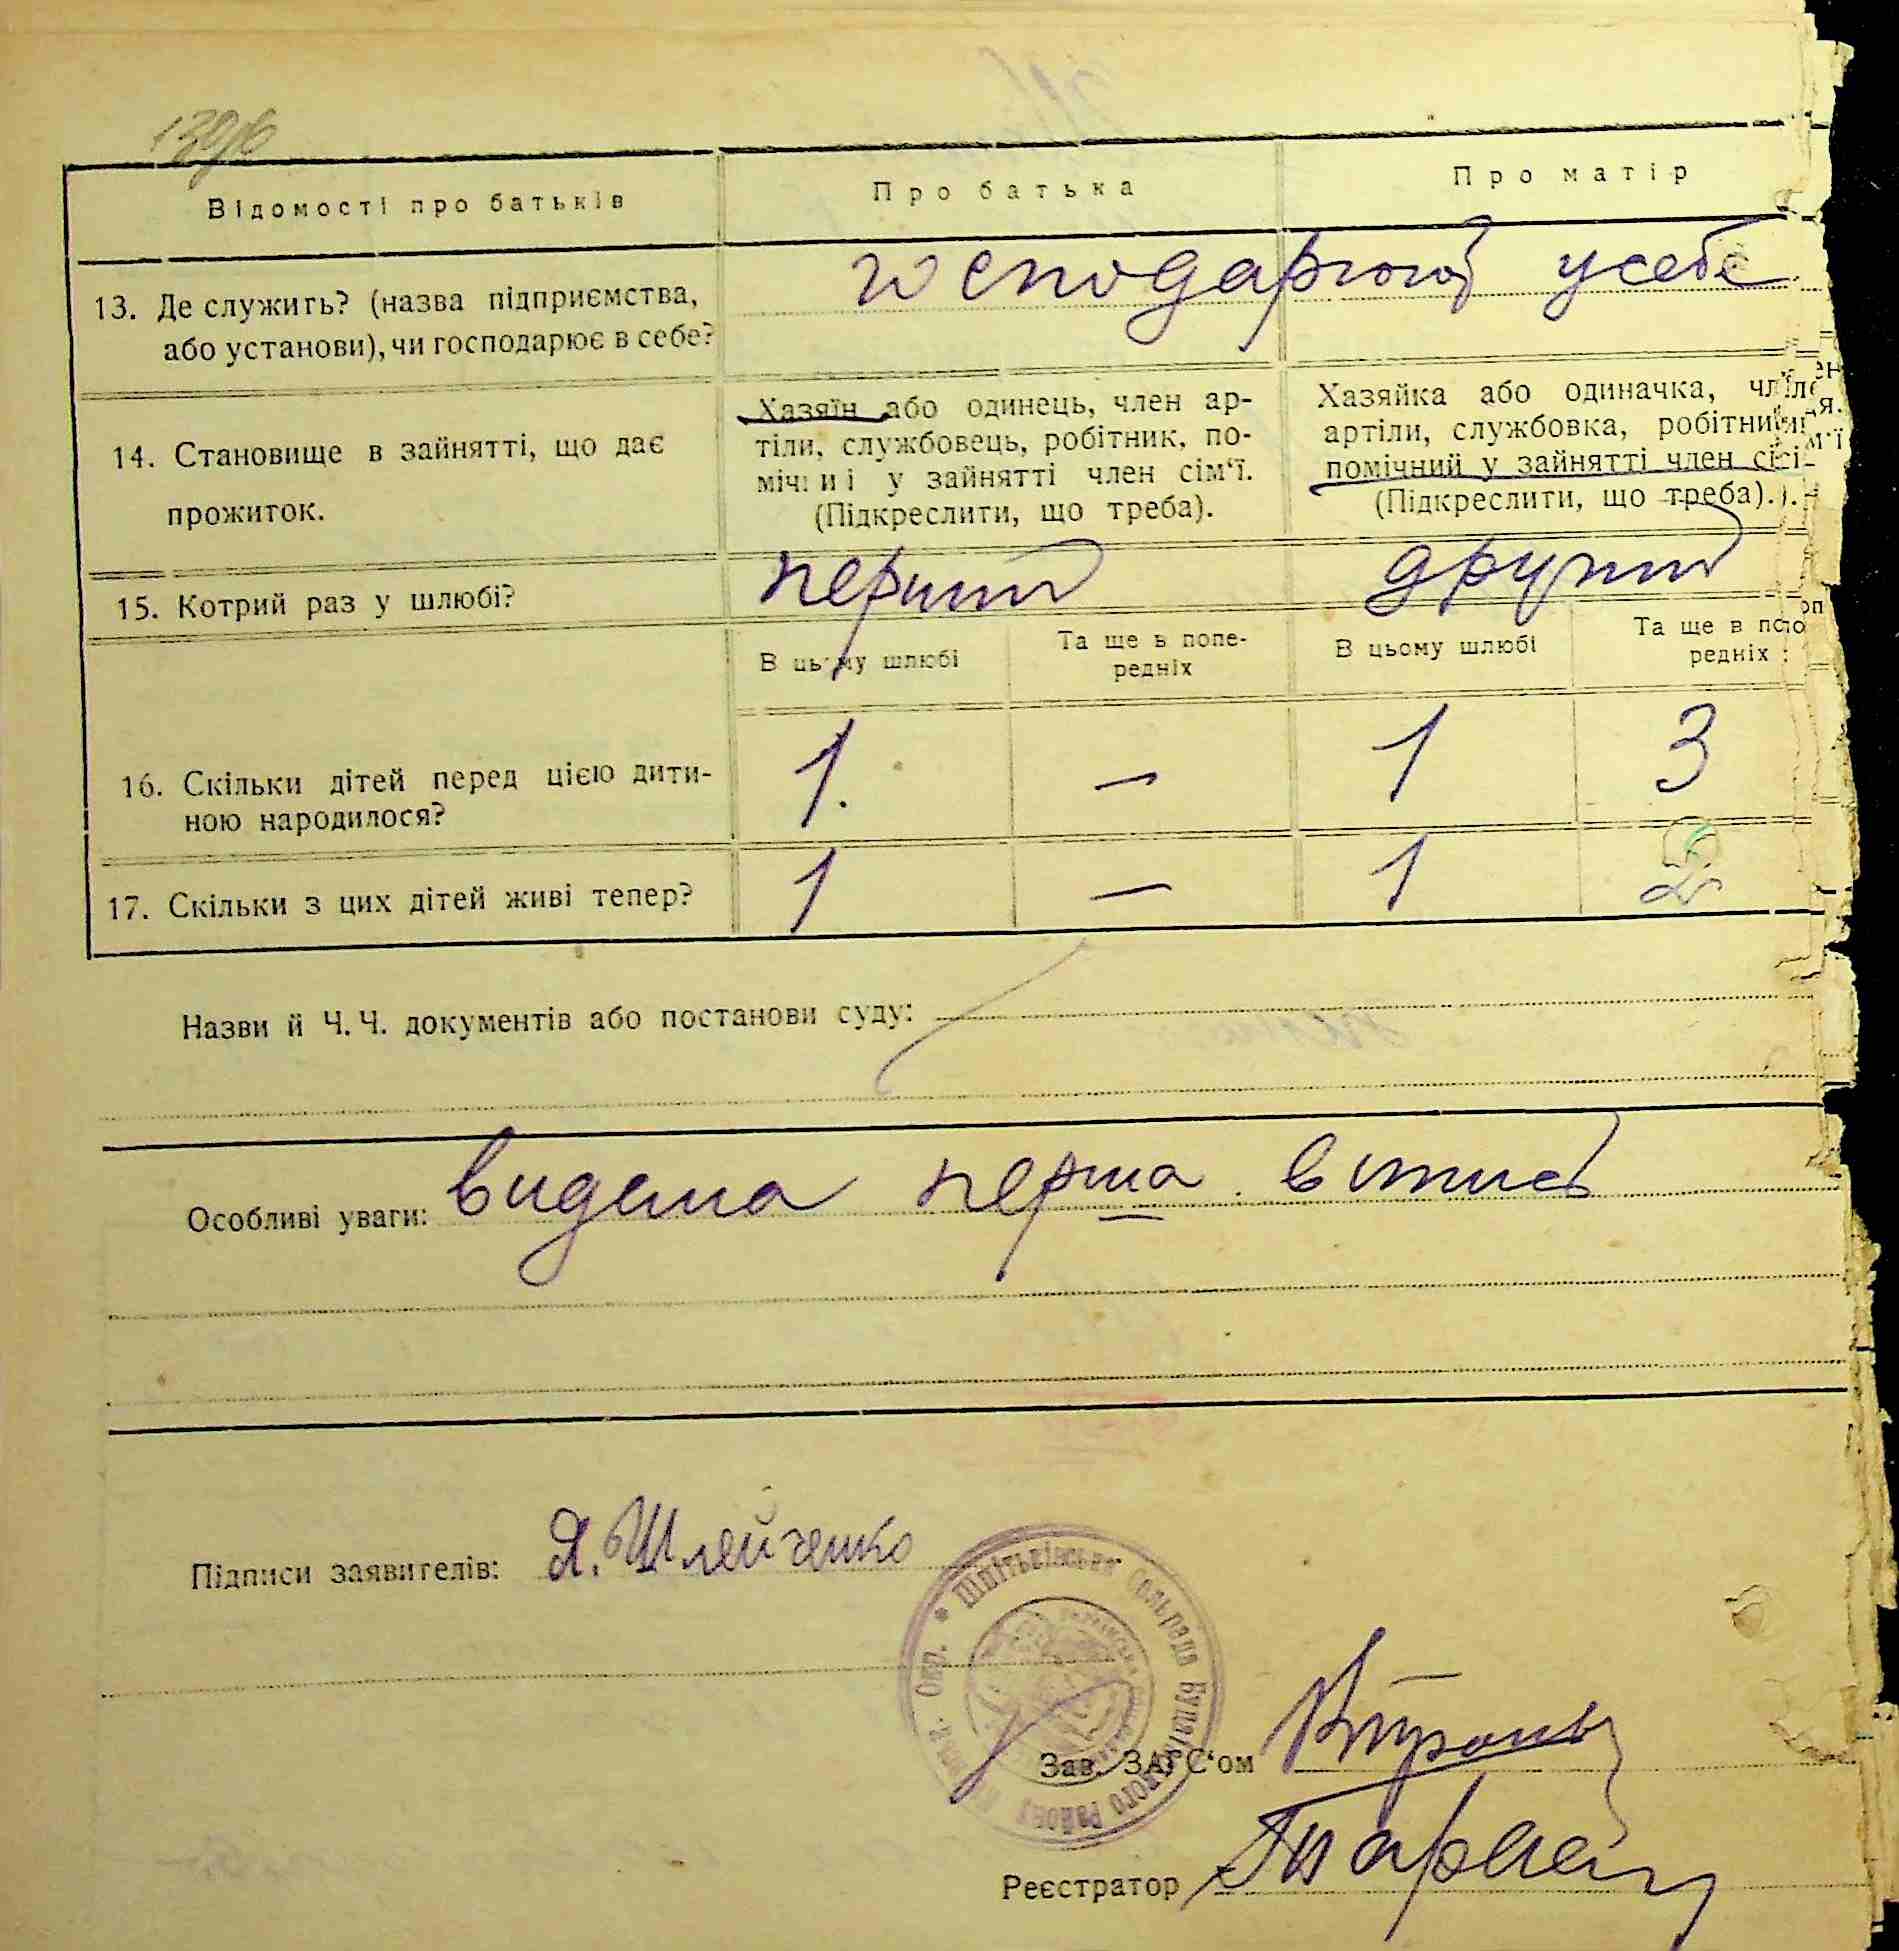 Відомості про батьків
Про батька
Про матір
13. Де служить? (назва підприємства,
або установи), чи господарює в себе?
господарюють у себе
14. Становище в зайнятті, що дає
прожиток.
Хазяїн або одинець, член ар-
тіли, службовець, робітник, по-
мічниі у зайнятті член сім‘ї.
(Підкреслити, що треба).
Хазяйка або одиначка, член
артіли, службовка, робітниця,
помічний у зайнятті член сі
(Підкреслити, що треба).
15. Котрий раз у шлюбі?
перший
другий
В цьому шлюбі
Та ще в попе-
редніх
В цьому шлюбі
Та ще в по
редніх
16. Скільки дітей перед цією дити-
ною народилося?
1.
—
1
3
17. Скільки з цих дітей живі тепер?
1
—
1
2
Назви й Ч.Ч. документів або постанови суду:
Особливі уваги: видана перша
Підписи заявителів: Я. Шлейченко
Сільрада
Району
Окр.
Зав. ЗАГС‘ом
Реєстратор